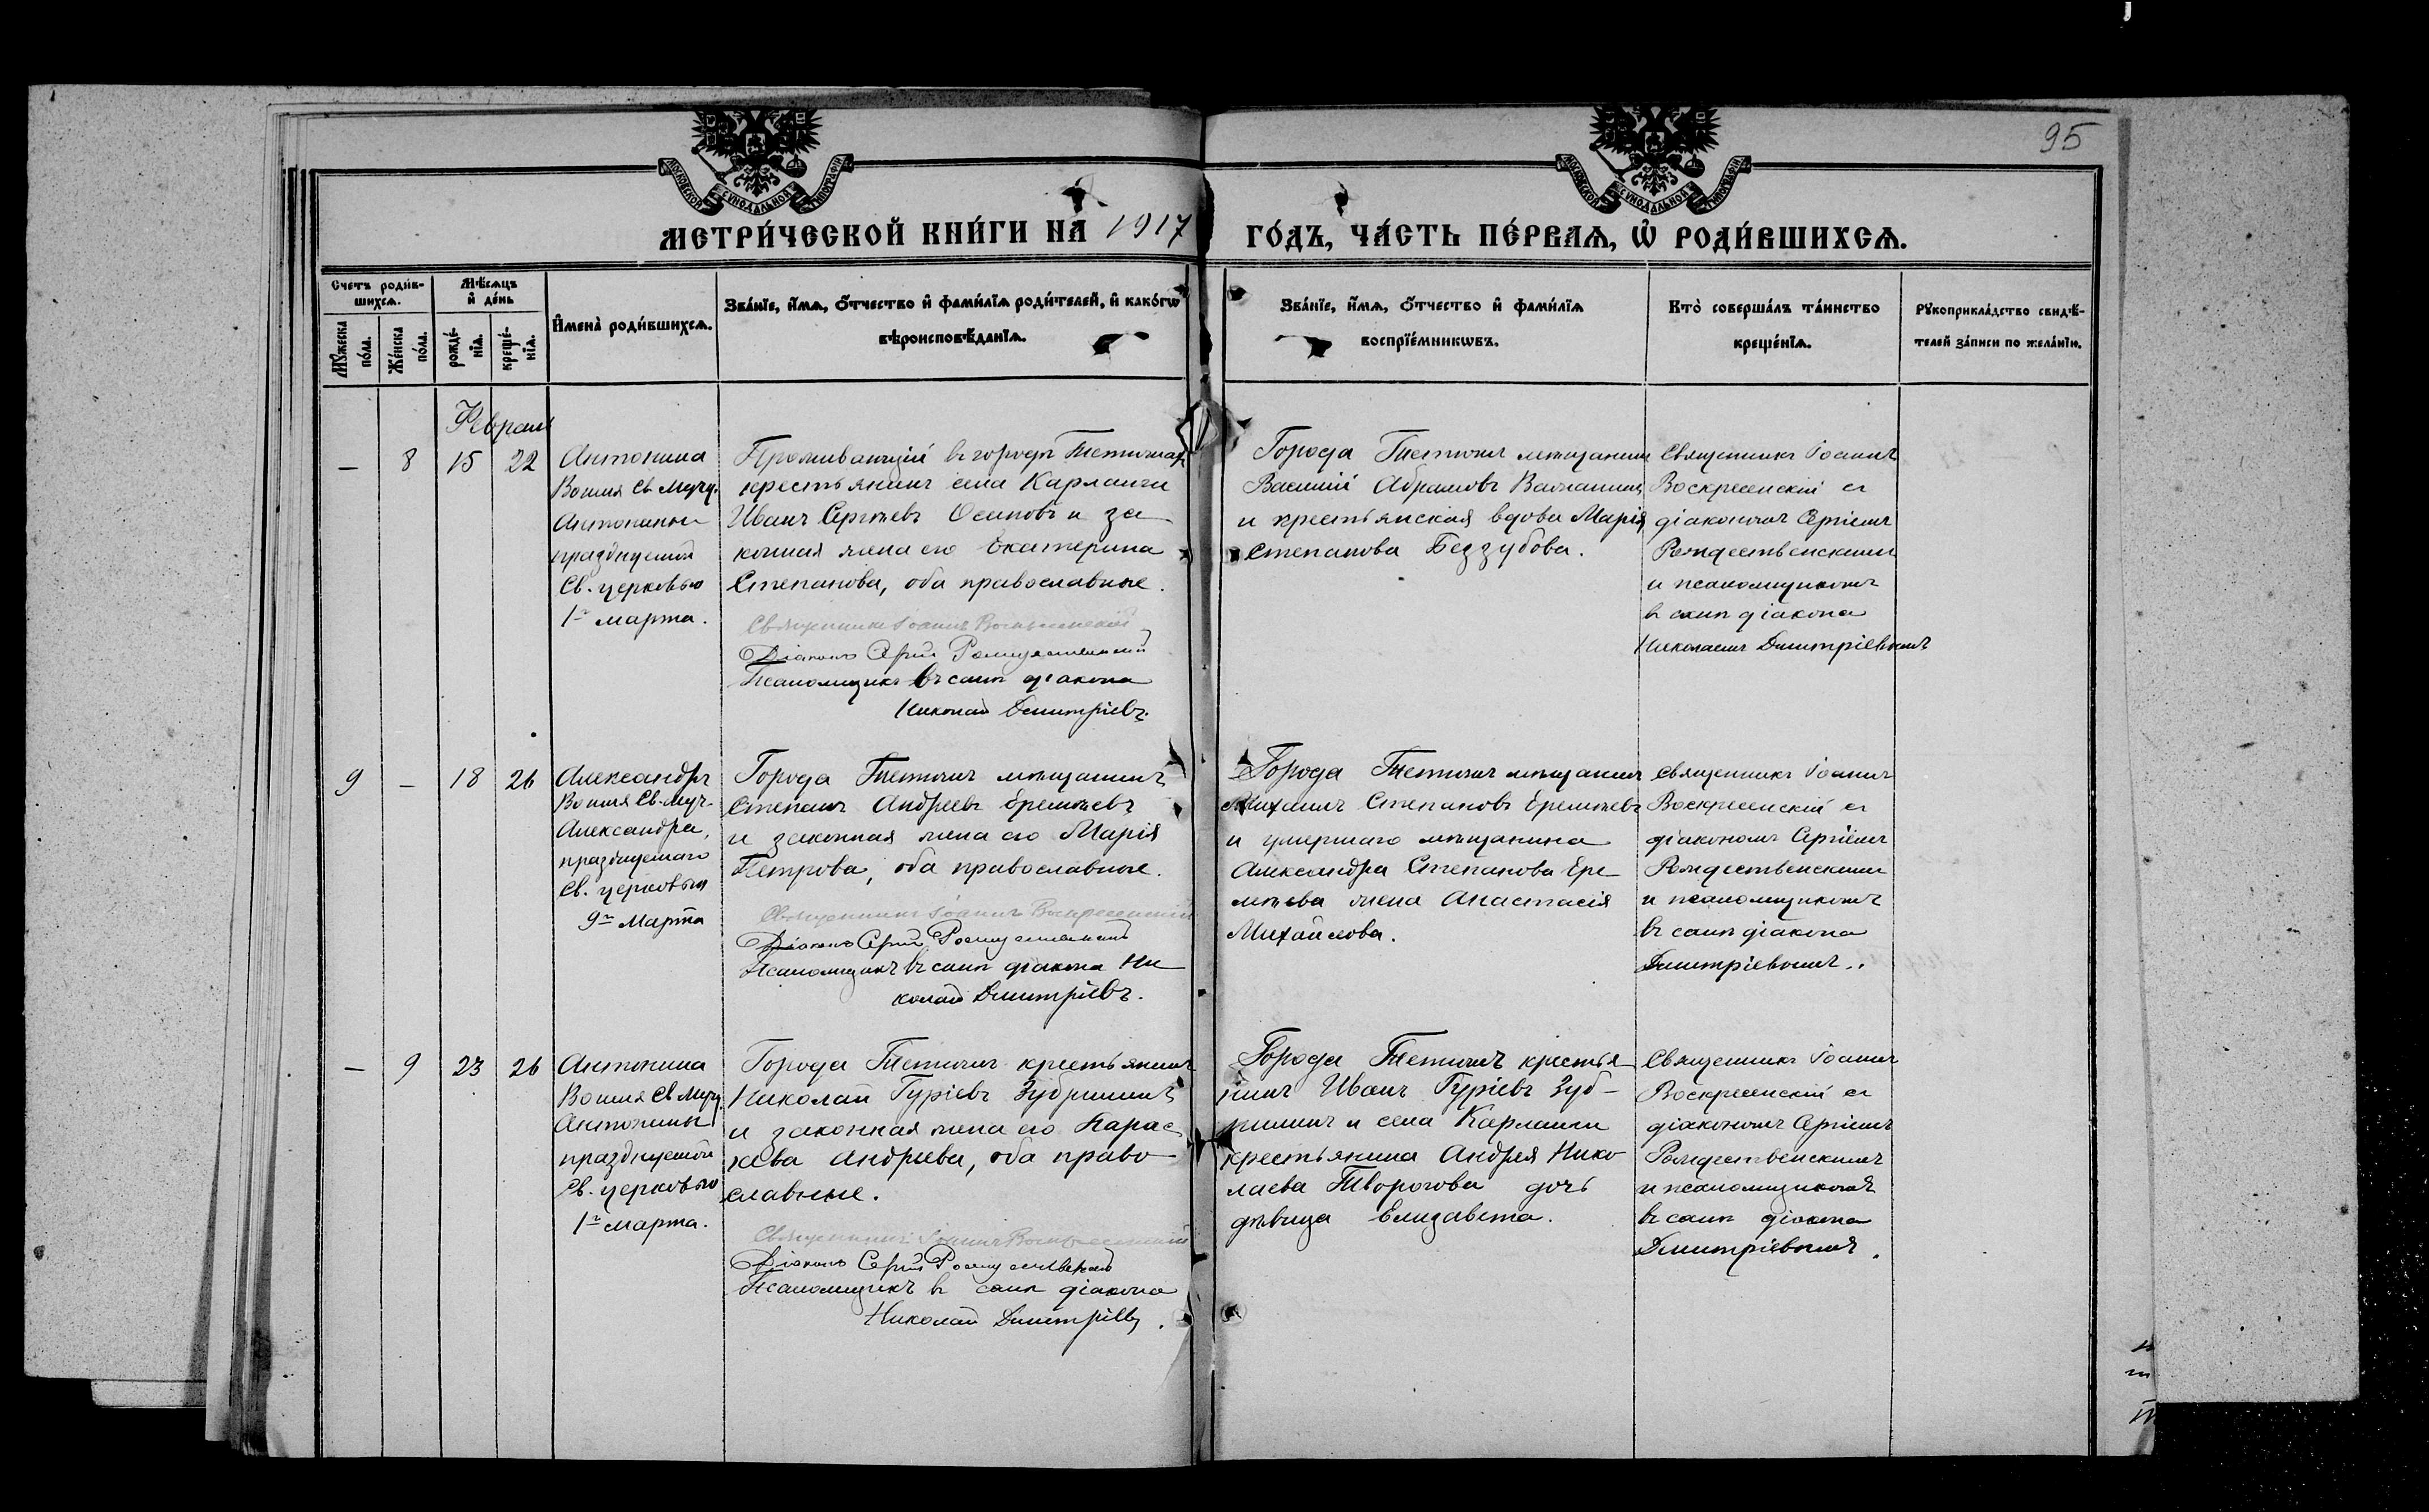 95
МОСКОВСКОЙ СѴНОДАЛЬНОЙ ТИПОГРАФІИ
МОСКОВСКОЙ СѴНОДАЛЬНОЙ ТИПОГРАФІИ
МЕТРИ́ЧЕСКОЙ КНИ́ГИ НА 1917 ГО́ДЪ, ЧА́СТЬ ПЕ́РВАѦ, Ѡ҆ РОДИ́ВШИХСѦ.
Счетъ роди́в-
шихсѧ.
Мꙋжеска
по́ла.
Же́нска
по́ла.
Мѣ́сѧцъ
и҆ де́нь
рожде́-
нїѧ.
креще́-
нїѧ.
И҆мена̀ роди́вшихсѧ.
Зва́нїе, и҆́мѧ, ѻ҆́тчество и҆ фами́лїѧ роди́телей, и҆ како́гѡ
вѣроисповѣ́данїѧ.
Зва́нїе, и҆́мѧ, ѻ҆́тчество и҆ фами́лїѧ
воспрїе́мникѡвъ.
Кто̀ соверша́лъ та́инство
креще́нїѧ.
Рꙋкоприкла́дство свидѣ́-
телей за́писи по жела́нїю.
Февраль
— 8 15 22
Антонина
Во имя Св. Мучц.
Антонины
празднуемой
Св. церковью
1го марта.
Проживающій въ городѣ Тетюшахъ
крестьянинъ села Карланги
Иванъ Сергѣевъ Осиповъ и за-
конная жена его Екатерина
Степанова, оба православные.
Священникъ Іоаннъ Воскресенскій
Діаконъ Сергій Рождественскій
Псаломщикъ въ санѣ діакона
Николай Димитріевъ.
Города Тетюшъ мѣщанинъ
Василій Абрамовъ
и крестьянская вдова Марія
Степанова Беззубова.
Священникъ Іоаннъ
Воскресенскій съ
діакономъ Сергіемъ
Рождественскимъ
и псаломщикомъ
въ санѣ діакона
Николаемъ Димитріевымъ
9 — 18 26
Александръ
Во имя Св. Муч.
Александра,
празднуемаго
Св. церковью
9го Марта
Города Тетюшъ мѣщанинъ
Степанъ Андреевъ Еремѣевъ
и законная жена его Марія
Петрова, оба православные.
Священникъ Іоаннъ Воскресенскій
Діаконъ Сергій Рождественскій
Псаломщикъ въ санѣ діакона Ни-
колай Димитріевъ.
Города Тетюшъ мѣщанинъ
Михаилъ Степановъ Еремѣевъ
и умершаго мѣщанина
Александра Степанова Ере-
мѣева жена Анастасія
Михайлова.
Священникъ Іоаннъ
Воскресенскій съ
діакономъ Сергіемъ
Рождественскимъ
и псаломщикомъ
въ санѣ діакона
Димитріевымъ.
— 9 23 26
Антонина
Во имя Св. Мучц.
Антонины
празднуемой
Св. церковью
1го марта.
Города Тетюшъ крестьянинъ
Николай Гуріевъ Зубринъ
и законная жена его Парас-
кева Андреева, оба право-
славные.
Священникъ Іоаннъ Воскресенскій
Діаконъ Сергій Рождественскій
Псаломщикъ въ санѣ діакона
Николай Димитріевъ.
Города Тетюшъ крестья-
нинъ Иванъ Гуріевъ Зуб-
и села Карланги
крестьянина Андрея Нико-
лаева Творогова дочь
дѣвица Елизавета.
Священникъ Іоаннъ
Воскресенскій съ
діакономъ Сергіемъ
Рождественскимъ
и псаломщикомъ
въ санѣ діакона
Димитріевымъ.